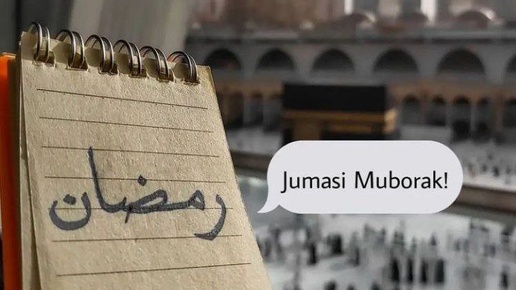 رمضان
Jumasi Muborak!